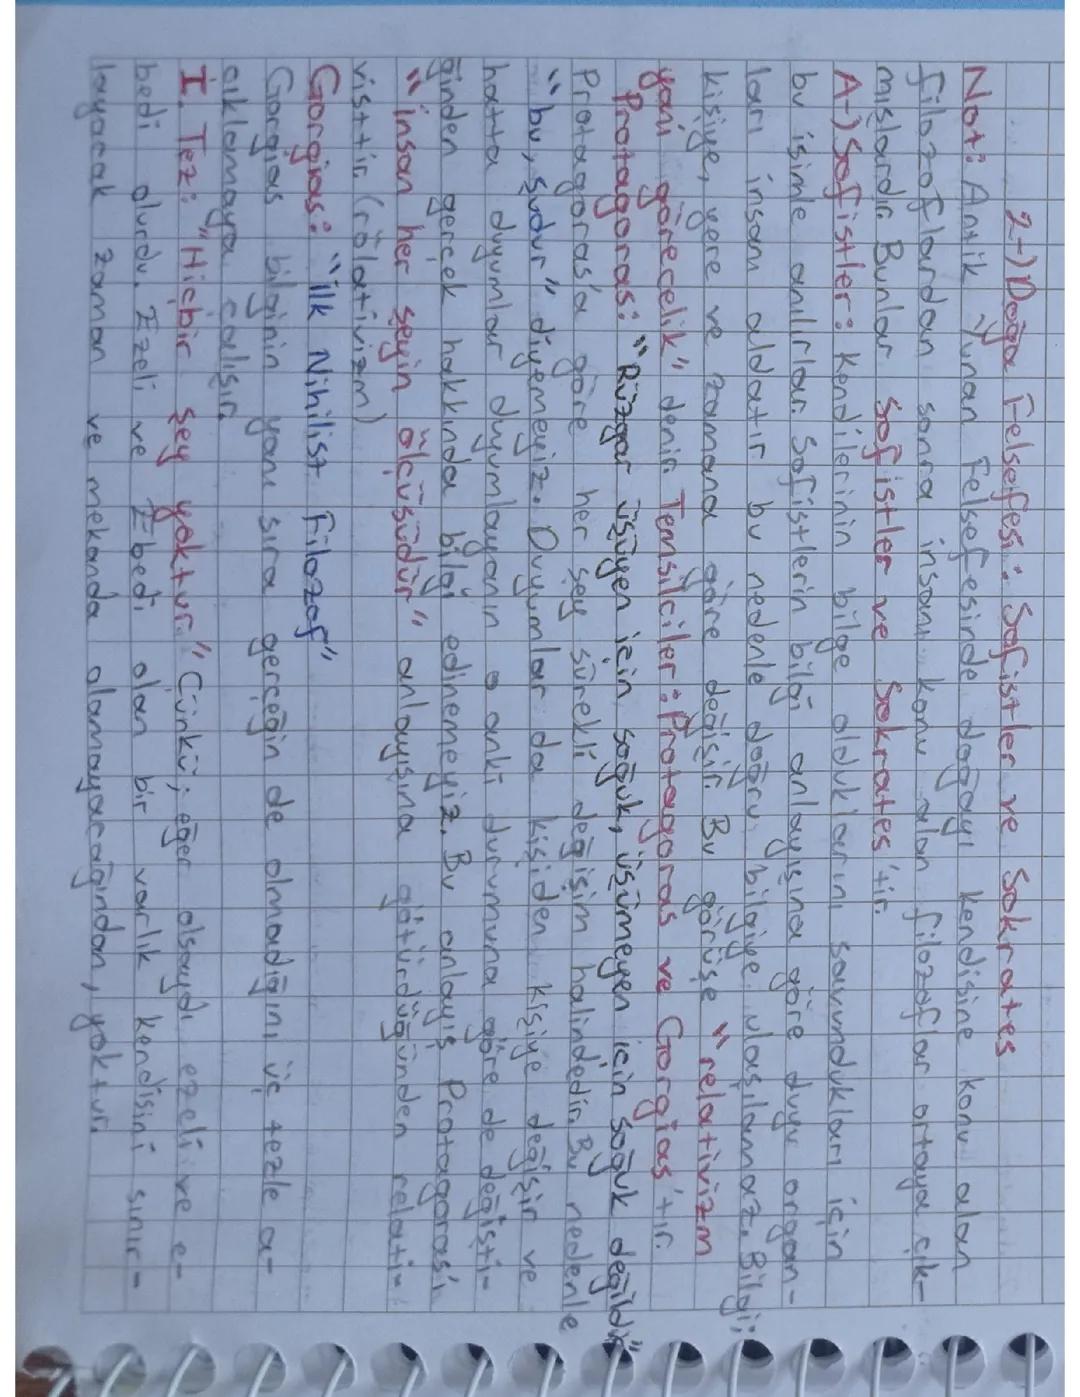 2-) Doğa Felsefesi: Sofistler ve Sokrates
Not: Antik Yunan Felsefesinde doğayı kendisine konu alan
filozoflardan sonra insanı konu alan filozoflar ortaya çık-
mışlardır. Bunlar sofistler ve Sokrates'tir.
A-) Sofistler: Kendilerinin bilge olduklarını savundukları için
bu isimle anılırlar. Sofistlerin bilgi anlayışına göre duyu organ-
ları insanı aldatır bu nedenle doğru bilgiye ulaşılamaz. Bilgi;
kişiye, yere ve zamana göre değişir. Bu görüşe "relativizm
yani görecelik" denir. Temsilciler: Protagoras ve Gorgias'tır.
Protagoras: "Rüzgar üşüyen için soğuk, üşümeyen için soğuk değildir"
Protagoras'a göre her şey sürekli değişim halindedir. Bu nedenle
"bu, şudur" diyemeyiz. Duyumlar da kişiden kişiye değişir ve
hatta duyumlar duyumlayanın o anki durumuna göre de değişti-
ğinden gerçek hakkında bilgi edinemeyiz. Bu anlayış Protagoras'ı
"insan her şeyin ölçüsüdür" anlayışına götürdüğünden relati-
visttir. (rölativizm)
Gorgias: "ilk Nihilist Filozof"
Gorgias bilginin yanı sıra gerçeğin de olmadığını üç tezle a-
çıklamaya çalışır.
I. Tez: "Hiçbir şey yoktur." Çünkü; eğer olsaydı ezeli ve e-
bedi olurdu. Ezeli ve Ebedi olan bir varlık kendisini sınır-
layacak zaman ve mekanda olamayacağından, yoktur.